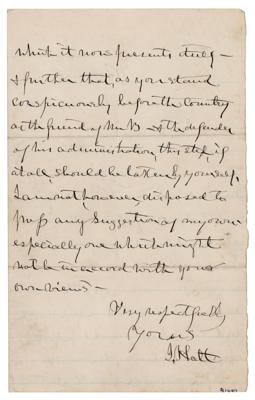 which it now presents itself —
& further that, as you stand
conspicuously before the Country
as the friend of Mr B & the defender
of his administration, this step, if
at all, should be taken by yourself.
I am not however, disposed to
press any suggestion of my own
especially one which might
not be in accord with your
own views —
Very respectfully
Yours
J. Holt